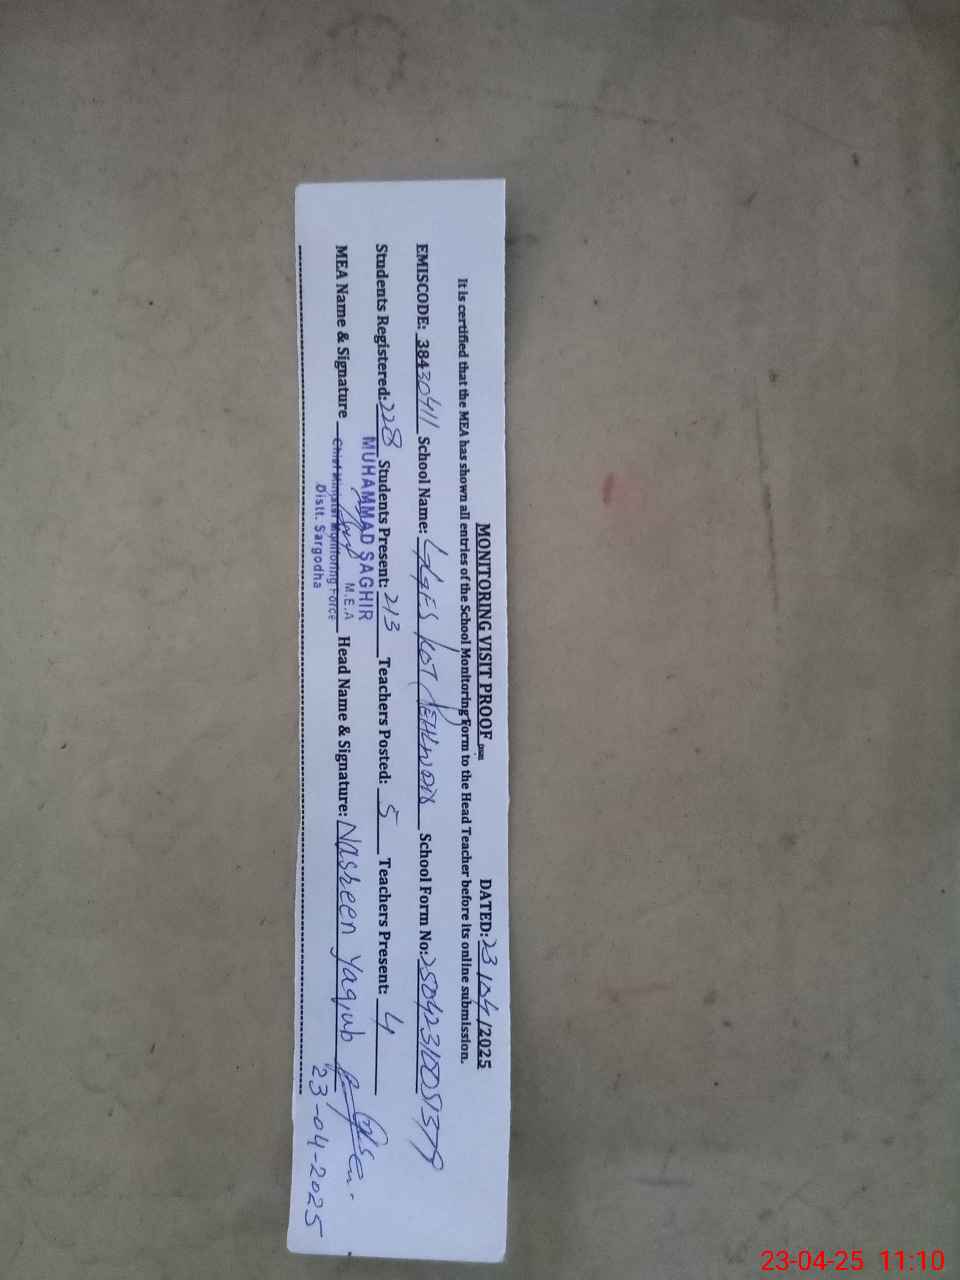 MONITORING VISIT PROOF DATED: 23/04/2025
It is certified that the MEA has shown all entries of the School Monitoring Form to the Head Teacher before its online submission.
EMISCODE: 38430411 School Name: GGES KOT School Form No: 25042310051379
Students Registered: 228 Students Present: 213 Teachers Posted: 5 Teachers Present: 4
MEA Name & Signature Head Name & Signature: Nasreen Yaqub
MUHAMMAD SAGHIR
M.E.A
Chief Minister Monitoring Force
Distt. Sargodha
23-04-2025
23-04-25 11:10